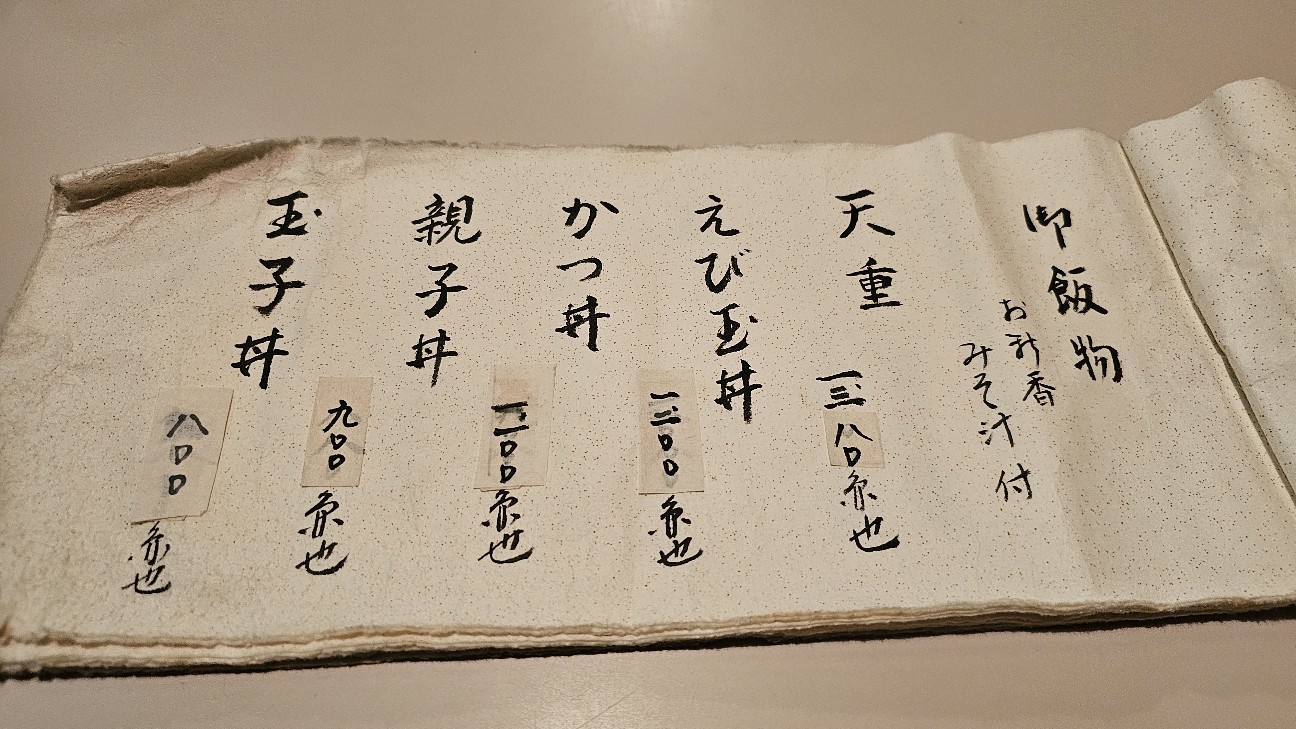 御飯物
お新香
みそ汁付
天重 一三八〇円也
えび玉丼 一二〇〇円也
かつ丼 一二〇〇円也
親子丼 九〇〇円也
玉子丼 八〇〇円也